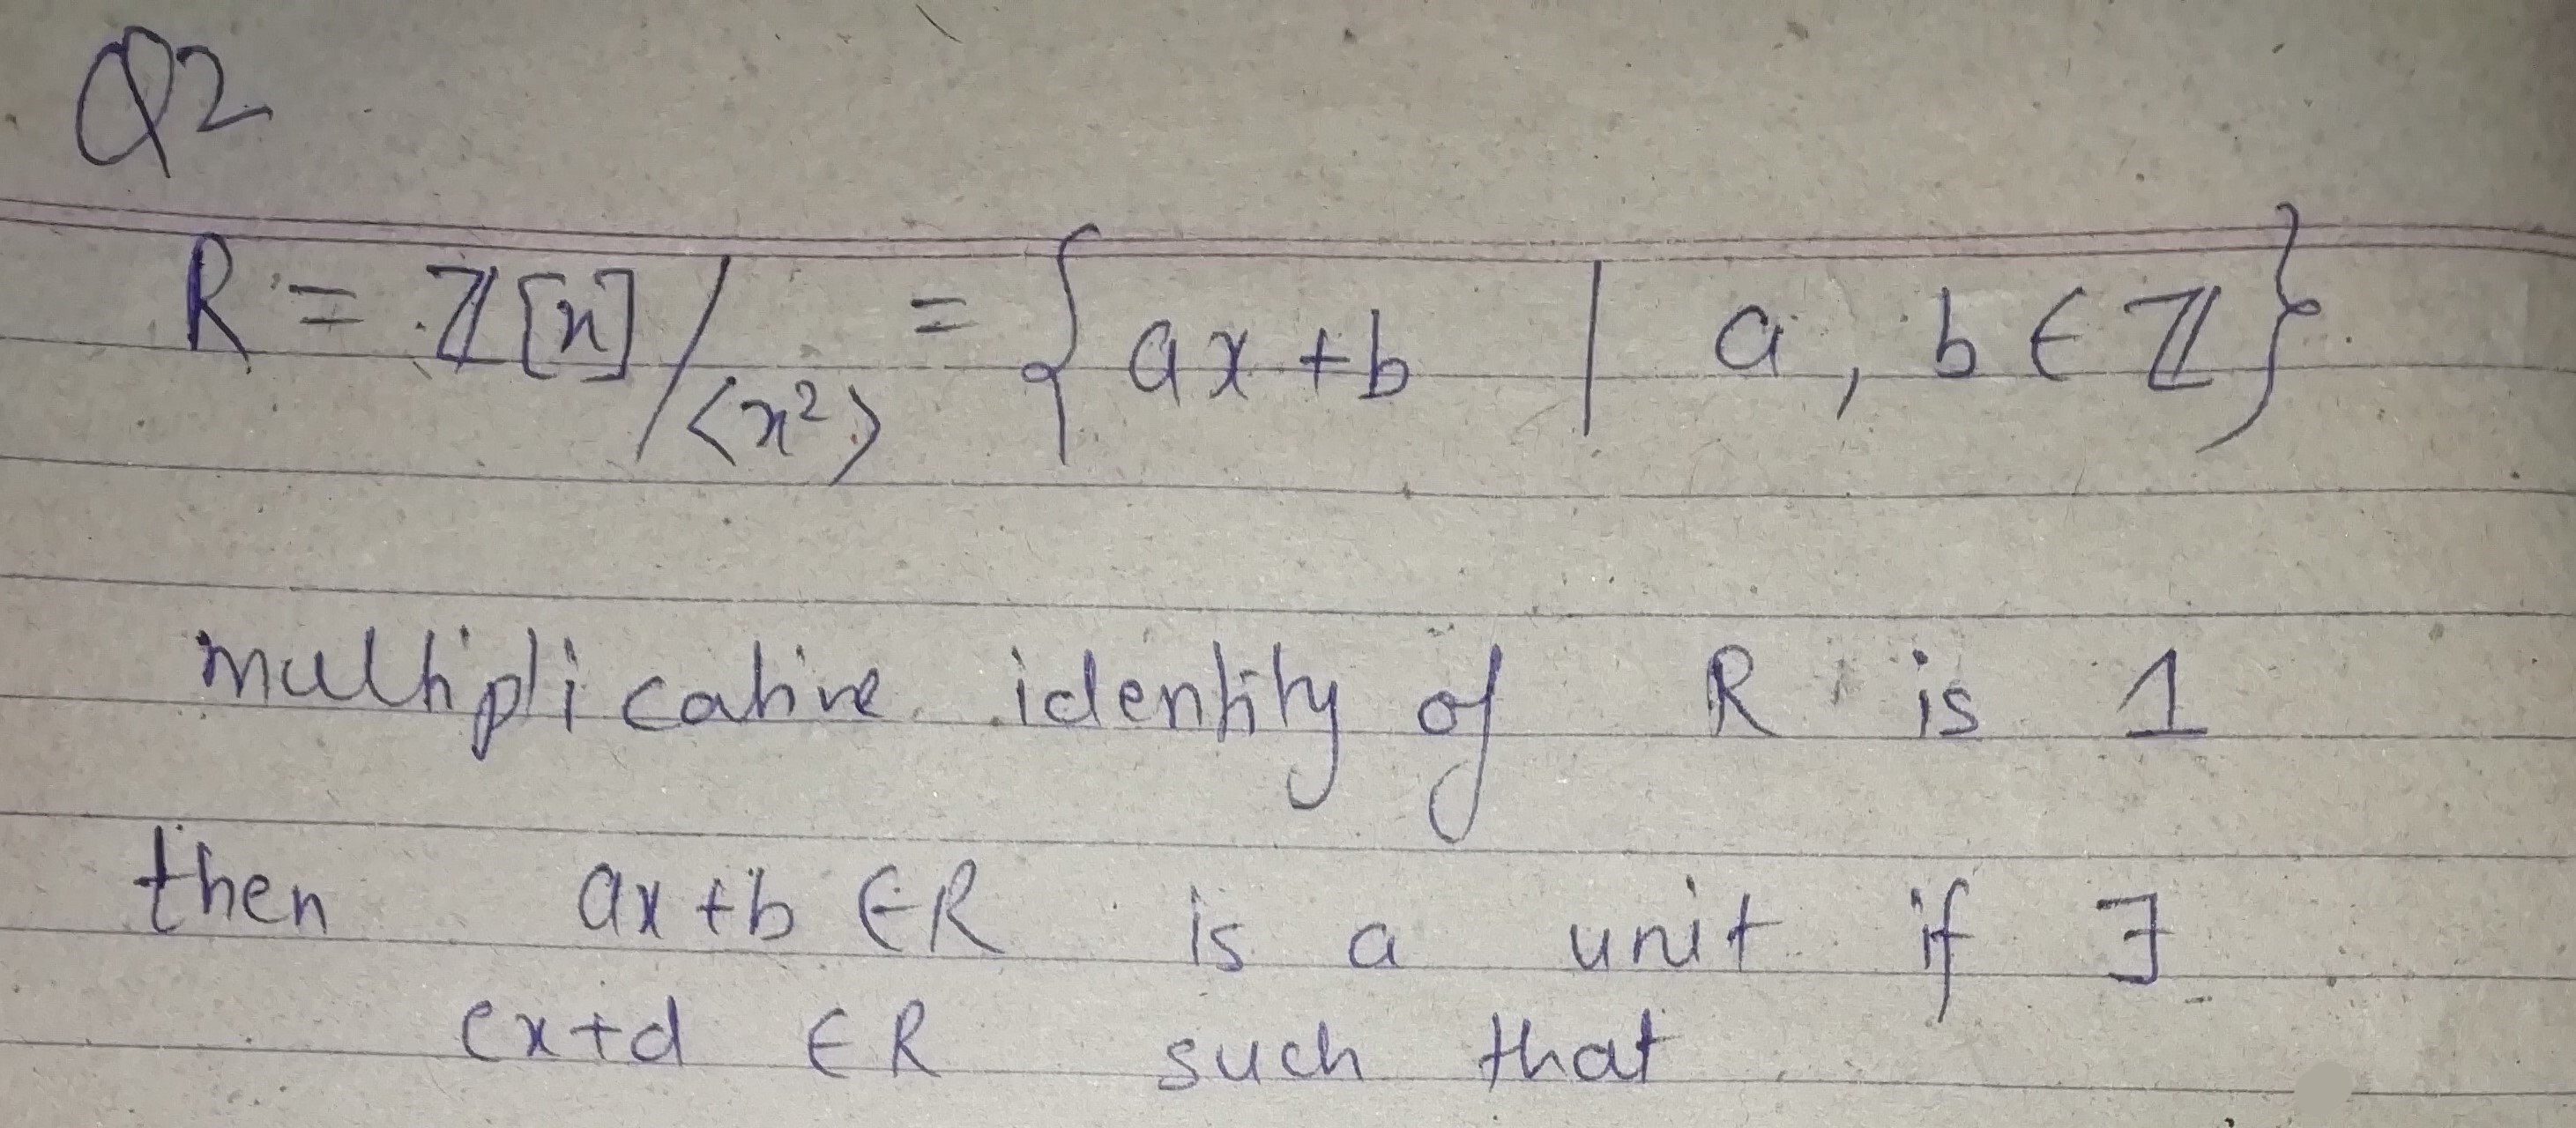 Q2
R = ℤ[x]/<x²> = { ax + b | a, b ∈ ℤ }
multiplicative identity of R is 1
then ax + b ∈ R is a unit if ∃
cx + d ∈ R such that